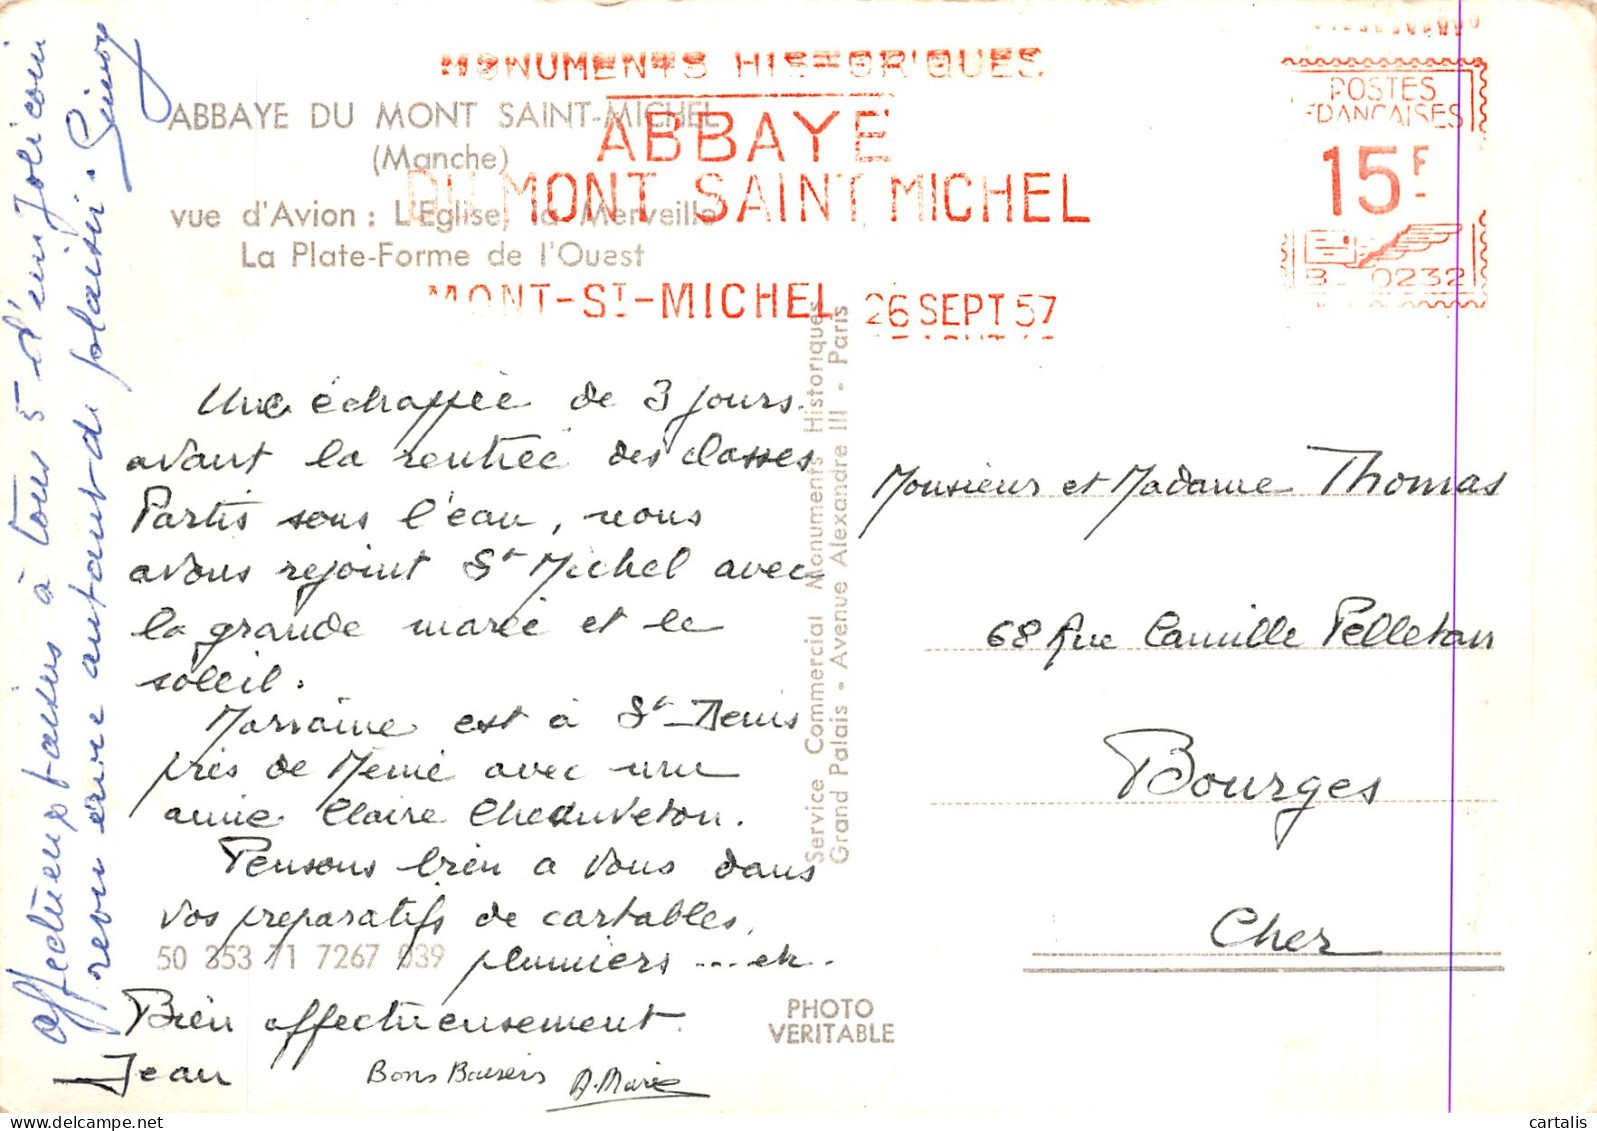 MONUMENTS HISTORIQUES
ABBAYE
DU MONT SAINT MICHEL
MONT-ST-MICHEL 26 SEPT 57
POSTES
FRANCAISES
15 F
B 0232
ABBAYE DU MONT SAINT-MICHEL
(Manche)
vue d'Avion : L'Eglise, la Merveille
La Plate-Forme de l'Ouest
Une échappée de 3 jours
avant la rentrée des classes
Partis sous l'eau, nous
avons rejoint St Michel avec
la grande marée et le
soleil.
Marraine est à St Denis
près de Mémé avec une
amie Claire Chauveton.
Pensons bien a vous dans
vos preparatifs de cartables,
plumiers .... etc.
Bien affectueusement.
Jean
Bons Baisers A. Marie
affectueux baisers à tous 5 d'un joli coin
revu avec autant de plaisir.
Service Commercial Monuments Historiques
Grand Palais - Avenue Alexandre III - Paris
Monsieur et Madame Thomas
68 Rue Camille Pelletan
Bourges
Cher
50 353 71 7267 039
PHOTO
VERITABLE
cartalis